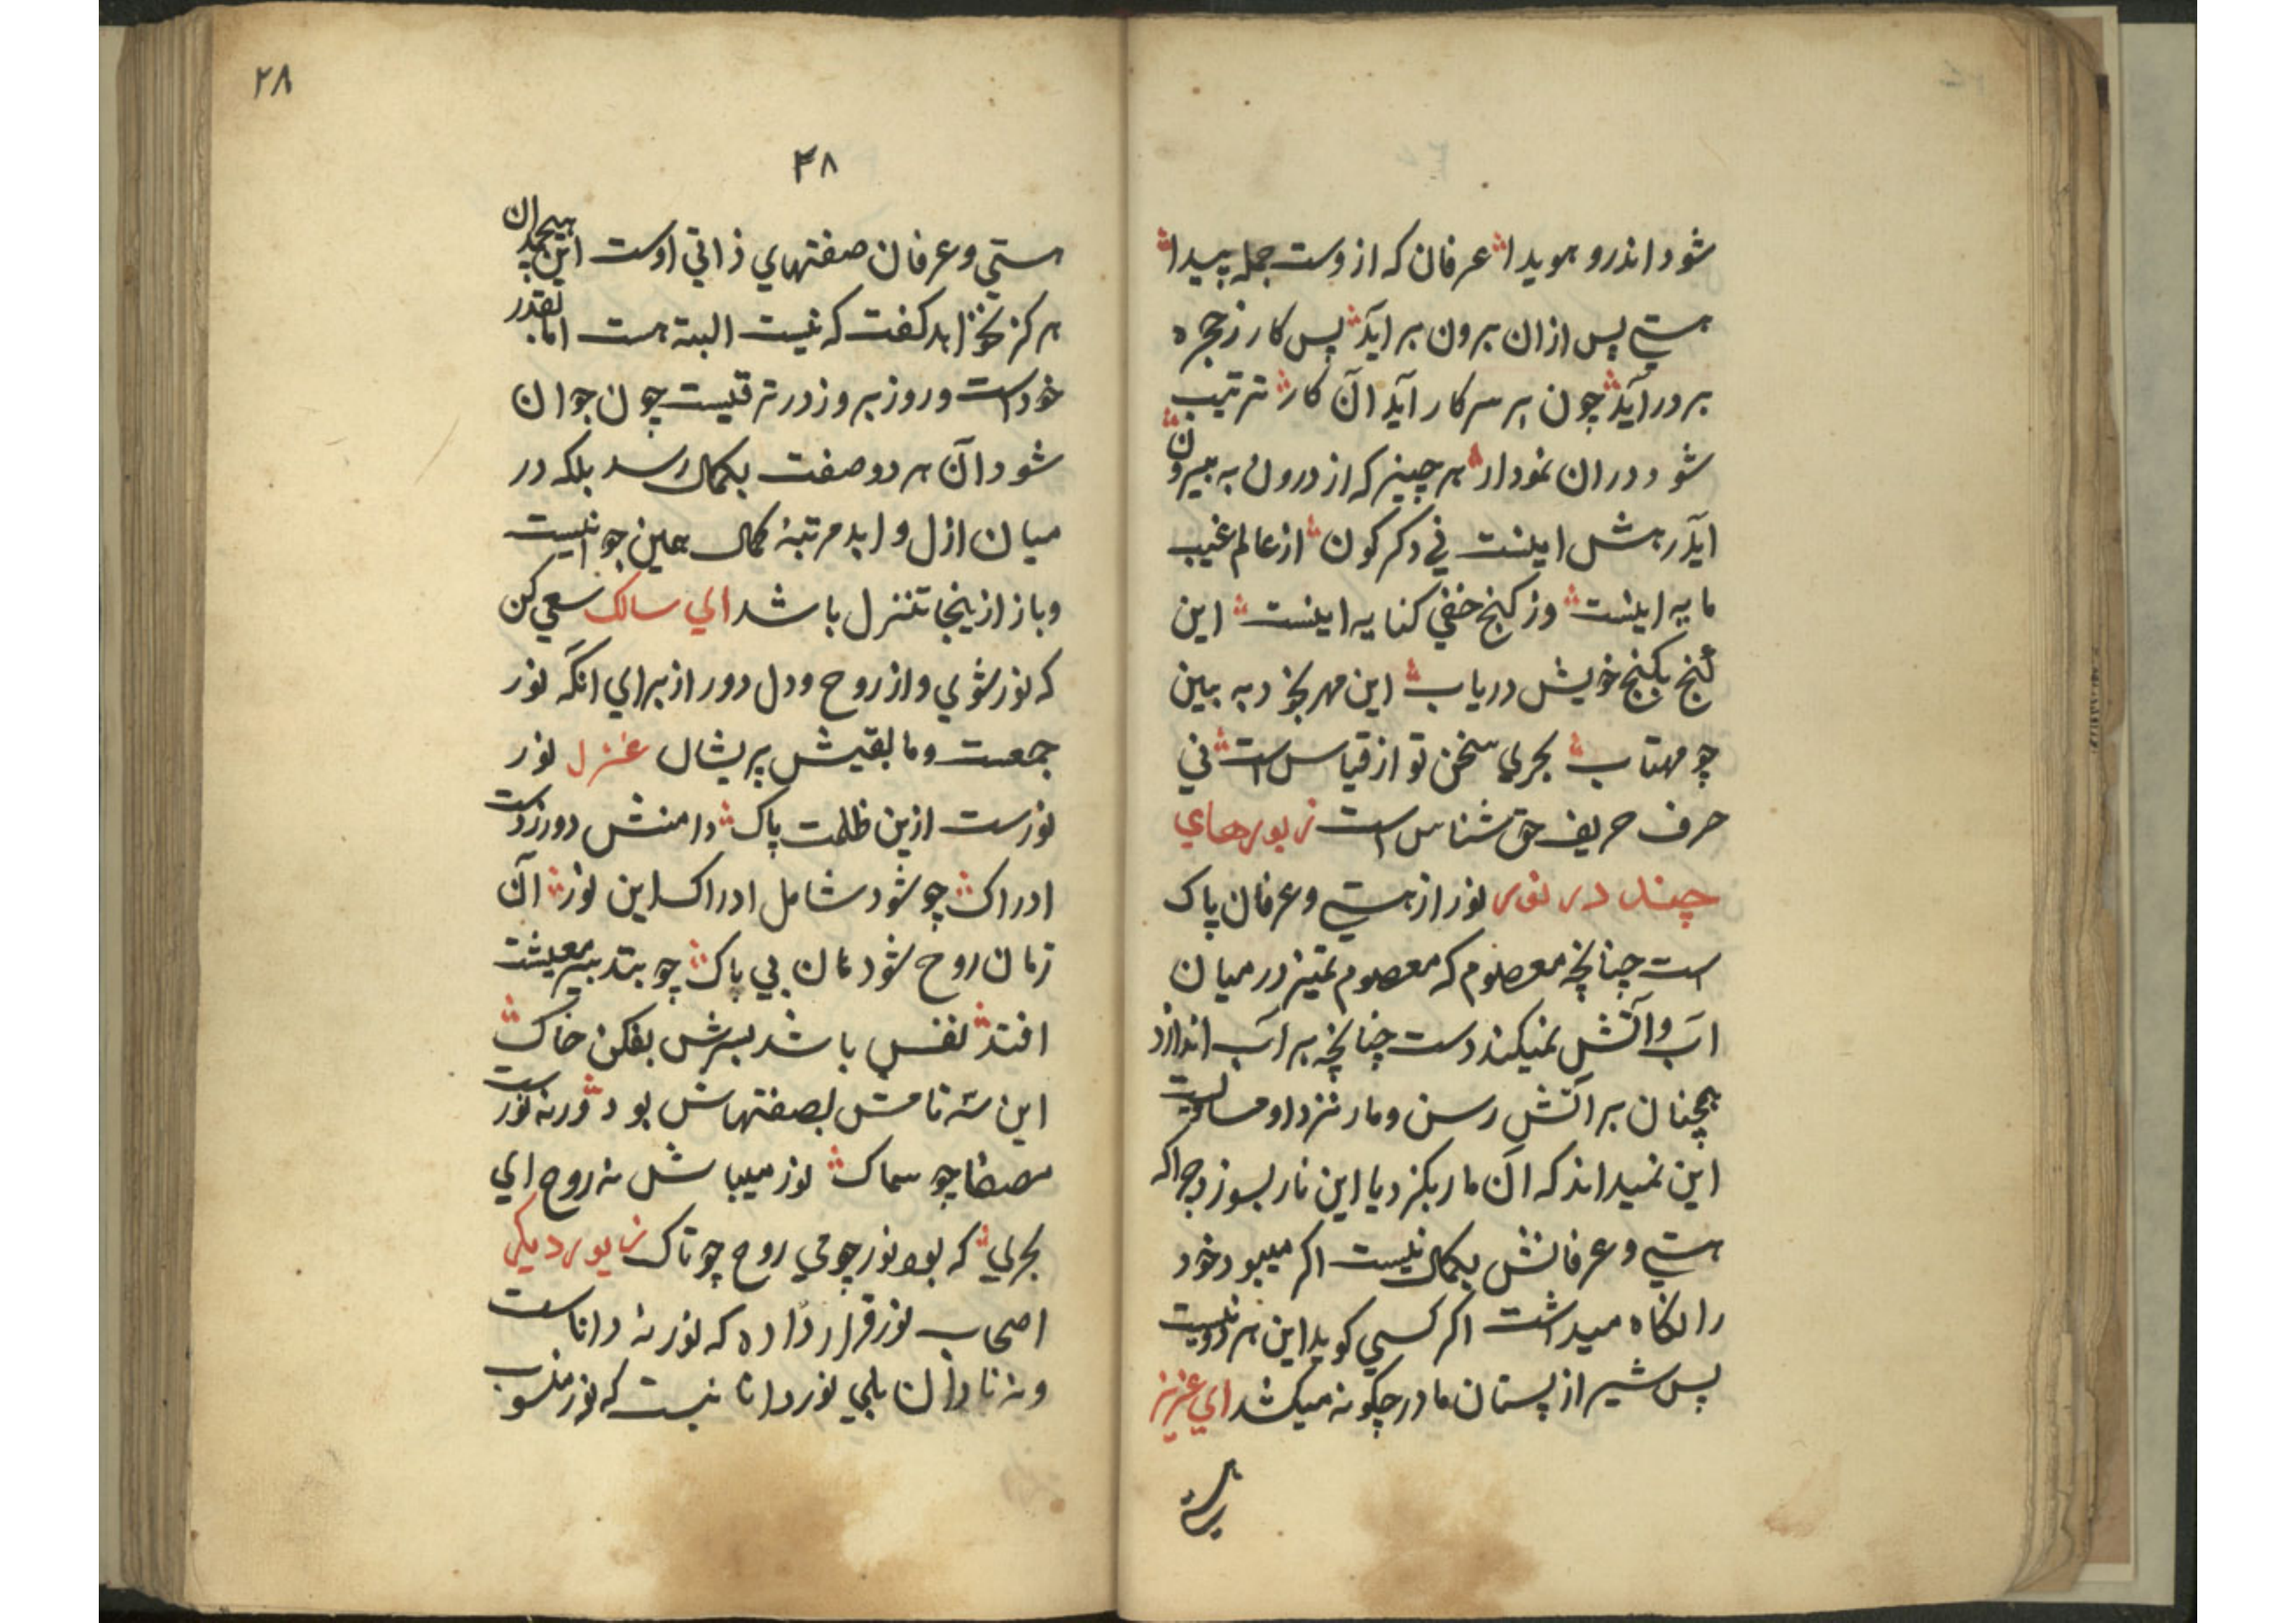 شود اندرو هویدا عرفان که ازوست جمله پیدا
هستی پس ازان برون برآید پس کار ز حجره
بردر آید چون بر سر کار آید آن کار ترتیب
شود دران نمودار هر چیز که از درون به بیرون
آید رهش اینست نی دگرگون از عالم غیب
مایه اینست وز کنج خفی کنایه اینست این
گنج بکنج خویش دریاب این مهر بخود به بین
چو مهتاب بحری سخن تو از قیاس است نی
حرف حریف حق شناس است زیورهای
چند در نور نور از هستی و عرفان پاک
است چنانچه معصوم که معصوم تمیز در میان
آب و آتش نمیکند دست چنانچه بر آب اندازد
همچنان بر آتش رسن و مار نزد او مساویست
این نمیداند که آن مار بگزد یا این نار بسوزد چرا که
هستی و عرفانش بکمال نیست اکر میبود خود
را نگاه میداشت اکر کسی کوید این هر دو نیست
پس شیر از پستان مادر چکونه میکشد ای عزیز
۲۸
۳۸
هستی و عرفان صفتهای ذاتی اوست این هیچدان
هرکز نخواهد کفت که نیست البته هست اما بقدر
خود است و روز بروز در ترقیست چون جوان
شود آن هر دو صفت بکمال رسد بلکه در
میان ازل و ابد مرتبهٔ کمال همین جوانیست
و باز ازینجا تنزل باشد ای سالک سعی کن
که نور شوی و از روح و دل دور از برای آنکه نور
جمعست و مابقیش پریشان غزل نور
نورست ازین ظلمت پاک دامنش دور زدست
ادراک چو شود شامل ادراک این نور آن
زمان روح شود نان بی باک چو بتدبیر معیشت
افتد نفس باشد بسرش بفکن خاک
این سه نامش بصفتهاش بود ورنه نورست
مصفا چو سماک نور میباش نه روح ای
بحری که بود نور چو می روح چو تاک زیور دیگر
اصحاب نور قرار داده که نور نه داناست
و نه نادان بلی نور دانا نیست که نور منسوب